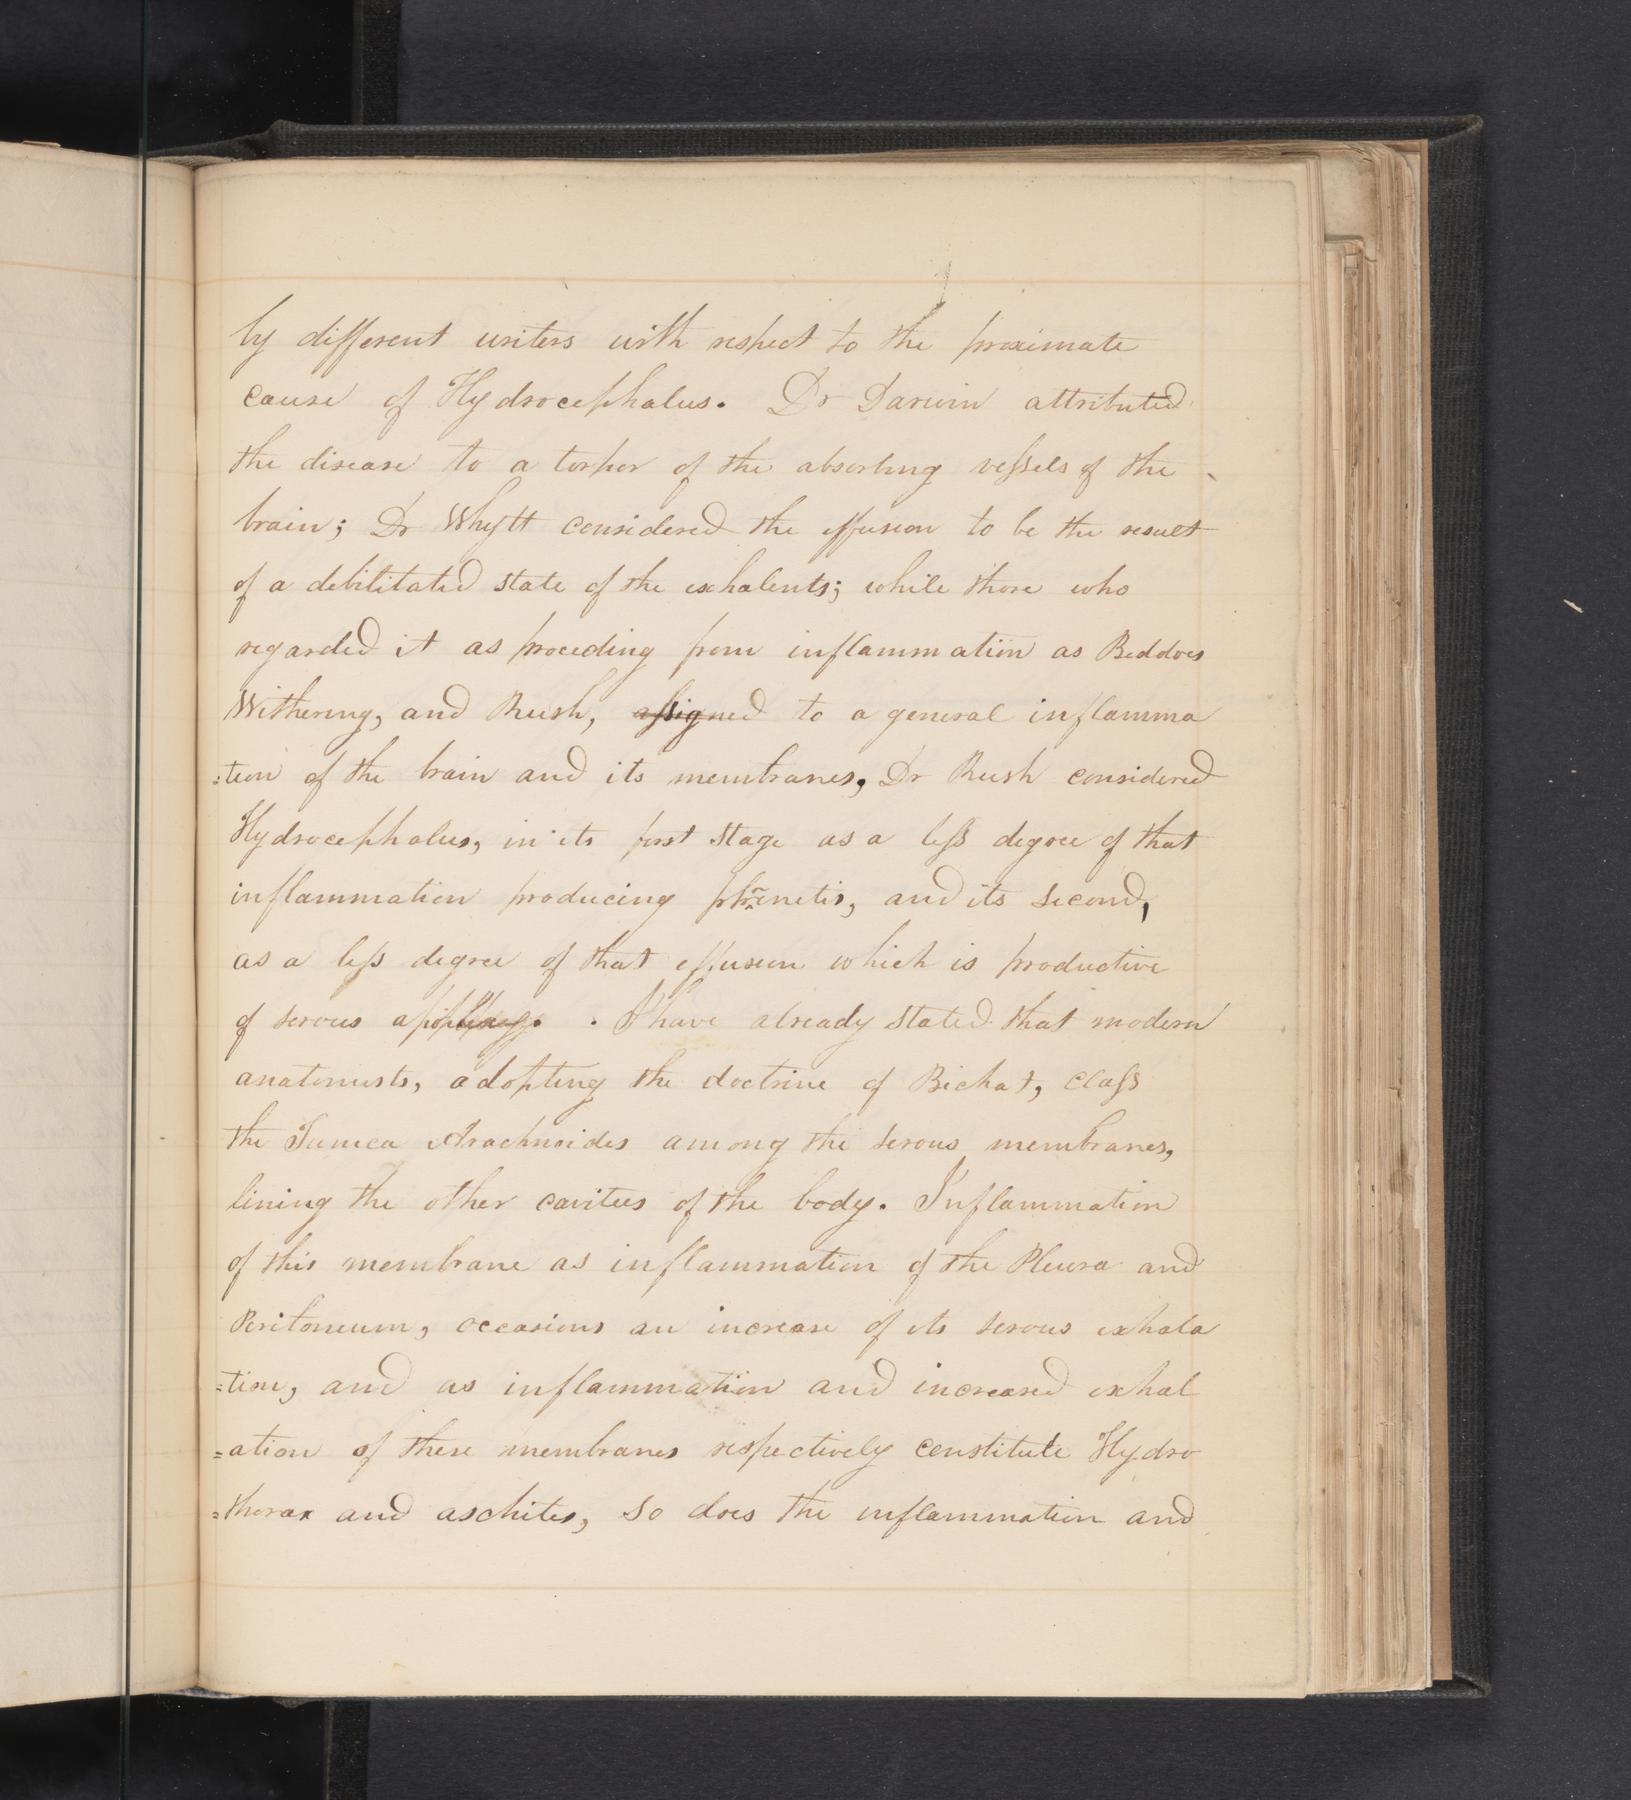 by different writers with respect to the proximate
cause of Hydrocephalus. Dr Darwin attributed
the disease to a torpor of the absorbing vessels of the
brain; Dr Whytt considered the effusion to be the result
of a debilitated state of the exhalents; while those who
regarded it as proceding from inflammation as Beddoes
Withering, and Rush, assigned to a general inflamma
=tion of the brain and its membranes, Dr Rush considered
Hydrocephalus, in its first stage as a less degree of that
inflammation producing phrenetis, and its second,
as a less degree of that effusion which is productive
of serous apoplexy. I have already stated that modern
anatomists, adopting the doctrine of Bichat, class
the Tunica Arachnoides among the serous membranes,
lining the other cavities of the body. Inflammation
of this membrane as inflammation of the Pleura and
Peritoneum, occasions an increase of its serous exhala
=tion, and as inflammation and increased exhal
=ation of these membranes respectively constitute Hydro
=thorax and aschites, so does the inflammation and